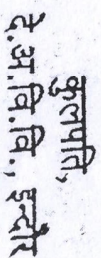 कुलपति,
दे.अ.वि.वि., इन्दौर